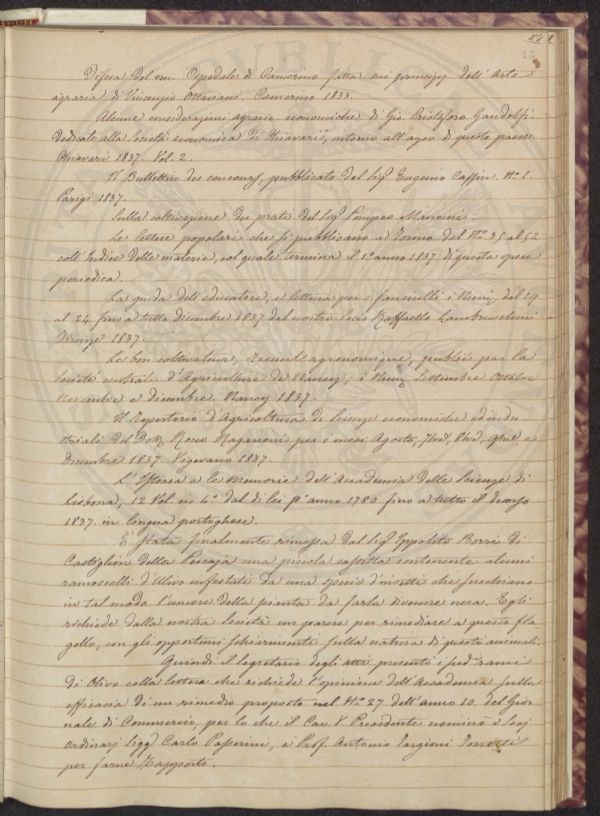 Difesa del ven. Ospedale di Camerino fatta sui principj dell'Arte
agraria di Vincenzio Ottaviani. Camerino 1833.
Alcune considerazioni agrarie economiche di Gio. Cristoforo Gandolfi
dedicate alla Società economica di Chiavari, intorno all'agro di questo paese
Chiavari 1837. Vol. 2.
Il Bullettin des concours, pubblicato dal Sig. Eugenio Caffin. N.° 1.
Parigi 1837.
Sulla coltivazione dei prati del Sig. Pompeo Mancini.
Le lettere popolari che si pubblicano a Torino dal N.° 35 al 52
coll'Indice delle materie, col quale termina il 1.° anno 1837 di questa opera
periodica.
La guida dell'educatore, e letture per i fanciulli i Num. dal 19
al 24 fino a tutto dicembre 1837 dal nostro socio Raffaello Lambruschini
Firenze 1837.
Le bon cultivateur, recueil agronomique, publié par la
Société centrale d'Agriculture de Nancy, i Num. Settembre Ottobre
Novembre e dicembre. Nancy 1837.
Il Repertorio d'Agricoltura di Scienze economiche ed indu
striali del Dott. Rocco Ragazzoni per i mesi Agosto, 7bre, 8bre, 9bre e
Dicembre 1837. Vigevano 1837.
L'Istoria e le Memorie dell'Accademia delle Scienze di
Lisbona, 12 Vol. in 4.° dal di lei p.° anno 1780 fino a tutto il decorso
1837. in lingua portoghese.
È stata finalmente rimessa dal Sig. Ippolito Borri di
Castiglion della Pescaja una piccola cassetta contenente alcuni
ramoscelli d'Ulivo infestati da una specie d'insetti che succhiano
in tal modo l'umore della pianta da farla divenire nera. Egli
richiede dalla nostra Società un parere per rimediare a questo fla
gello, con gli opportuni schiarimenti sulla natura di questi animali.
Quindi il Segretario degli atti presentò i sud. rami
di Olivo colla lettera che richiede l'opinione dell'Accademia sulla
efficacia di un rimedio proposto nel N.° 27 dell'anno 10. del Gior
nale di Commercio, per lo che il Cav. V. Presidente nominò i Socj
ordinarj Sigg. Carlo Passerini, e Prof. Antonio Targioni Tozzetti
per farne Rapporto.